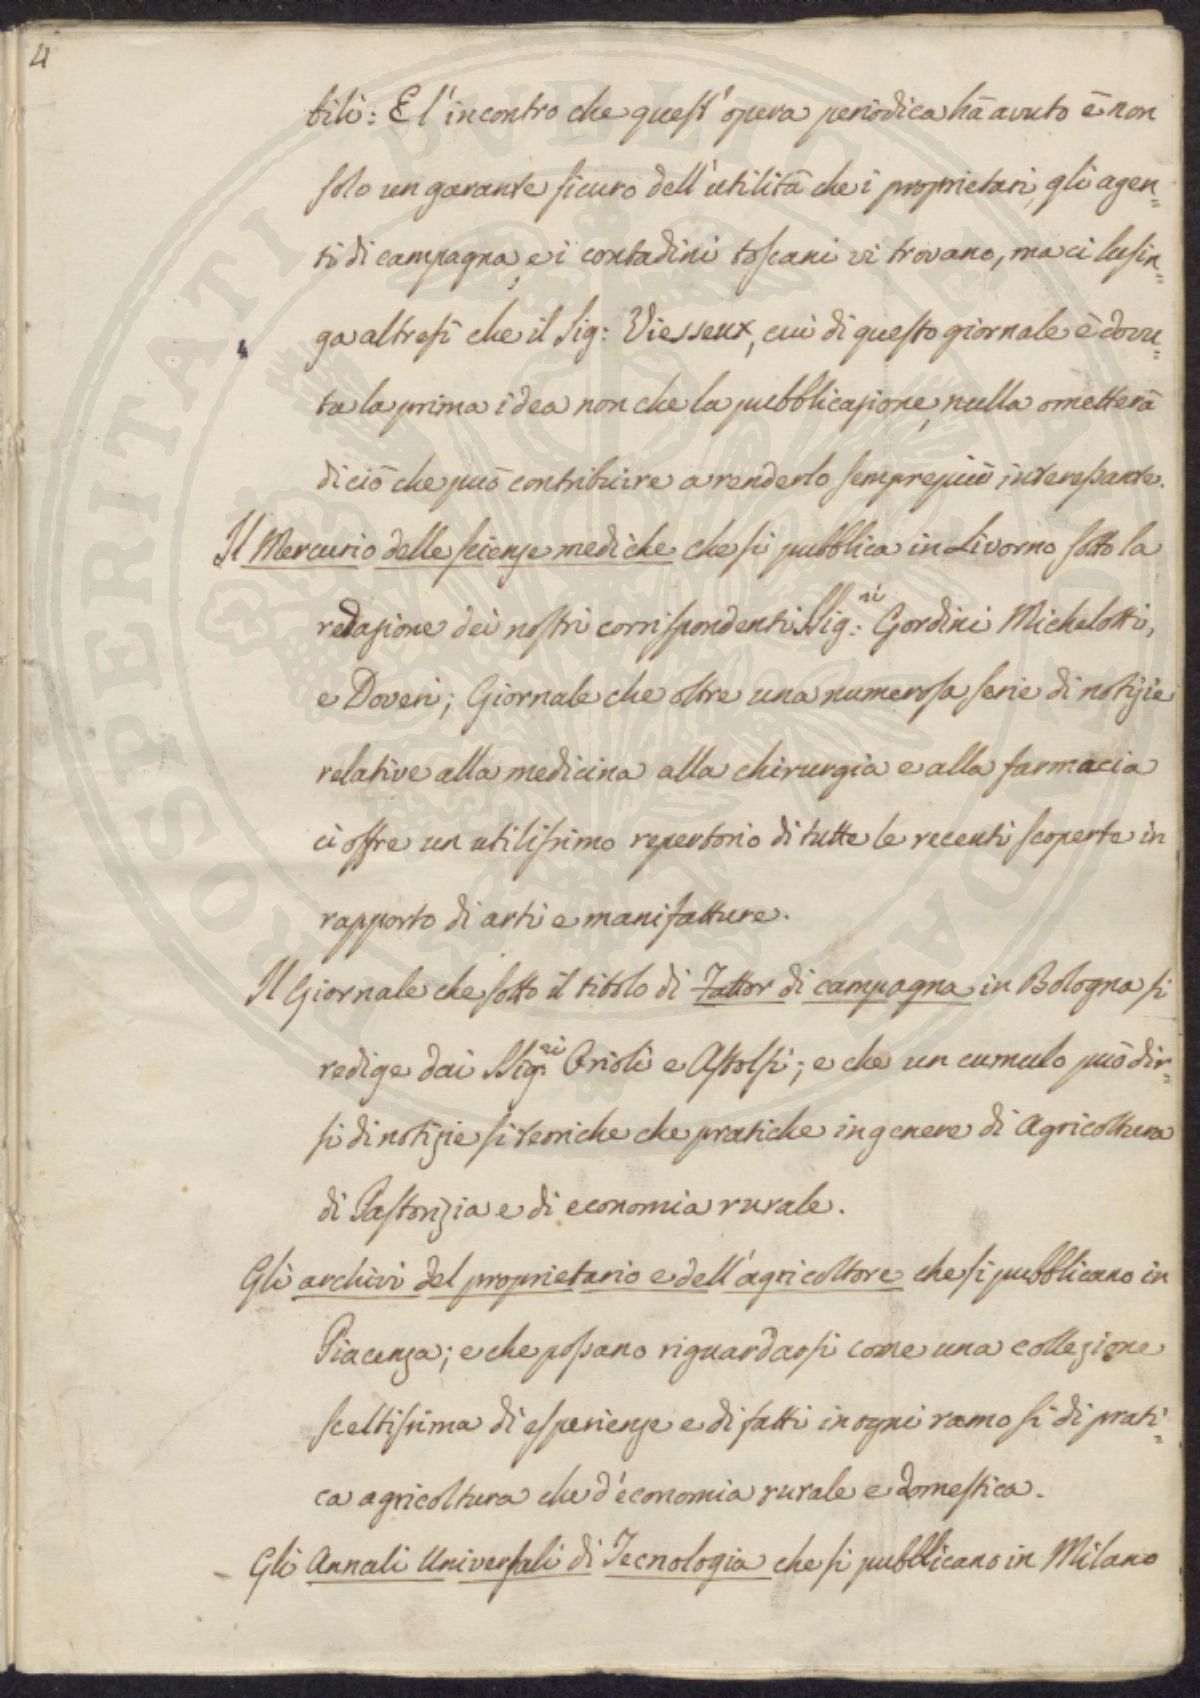 4
bili: E l'incontro che quest'opera periodica hà avuto è non
solo un garante sicuro dell'utilità che i proprietari, gli agen=
ti di campagna, e i contadini toscani vi trovano, ma ci lusin=
ga altresì che il Sig: Viesseux, cui di questo giornale è dovu=
ta la prima idea non che la pubblicazione, nulla ometterà
di ciò che può contribuire a renderlo semprepiù interessante.
Il Mercurio delle scienze mediche che si pubblica in Livorno sotto la
redazione dei nostri corrispondenti SSig:ri Gordini Michelotti,
e Doveri; Giornale che oltre una numerosa serie di notizie
relative alla medicina alla chirurgia e alla farmacia
ci offre un utilissimo repertorio di tutte le recenti scoperte in
rapporto di arti e manifatture.
Il Giornale che sotto il titolo di Fattor di campagna in Bologna si
redige dai SSig:ri Orioli e Astolfi; e che un cumulo può dir=
si di notizie sì teoriche che pratiche in genere di Agricoltura
di Pastorizia e di economia rurale.
Gli archivi del proprietario e dell'agricoltore che si pubblicano in
Piacenza; e che possano riguardarsi come una collezione
sceltissima di esperienze e di fatti in ogni ramo sì di prati=
ca agricoltura che d'economia rurale e domestica.
Gli Annali Universali di Tecnologia che si pubblicano in Milano
PROSPERITATI PUBLICAE AUGENDAE